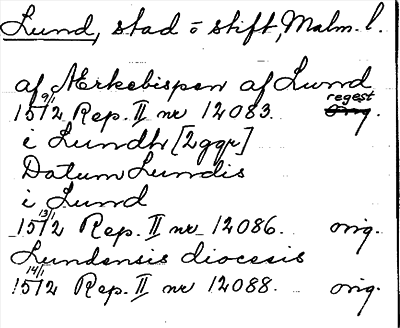 Lund, stad o stift, Malm. l.
af Ærkebispen af Lund
15 9/1 12 Rep. II nr 12083. regest orig.
i Lundh [2 ggr]
Datum Lundis
i Lund
15 13/1 12 Rep. II nr 12086. orig.
Lundensis diocesis
15 14/1 12 Rep. II nr 12088. orig.